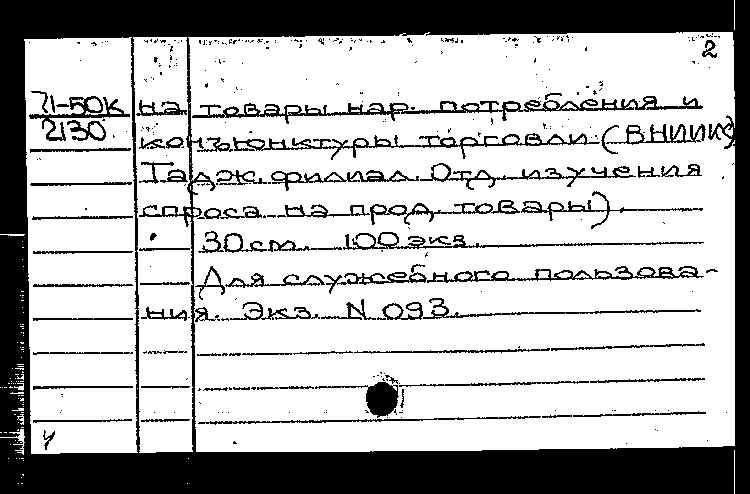 2
71-50К на товары нар. потребления и
2130 конъюнктуры торговли (ВНИИКС
Тадж. филиал. Отд. изучения
спроса на прод. товары).
30см. 100 экз.
Для служебного пользова-
ния. Экз. N 093.